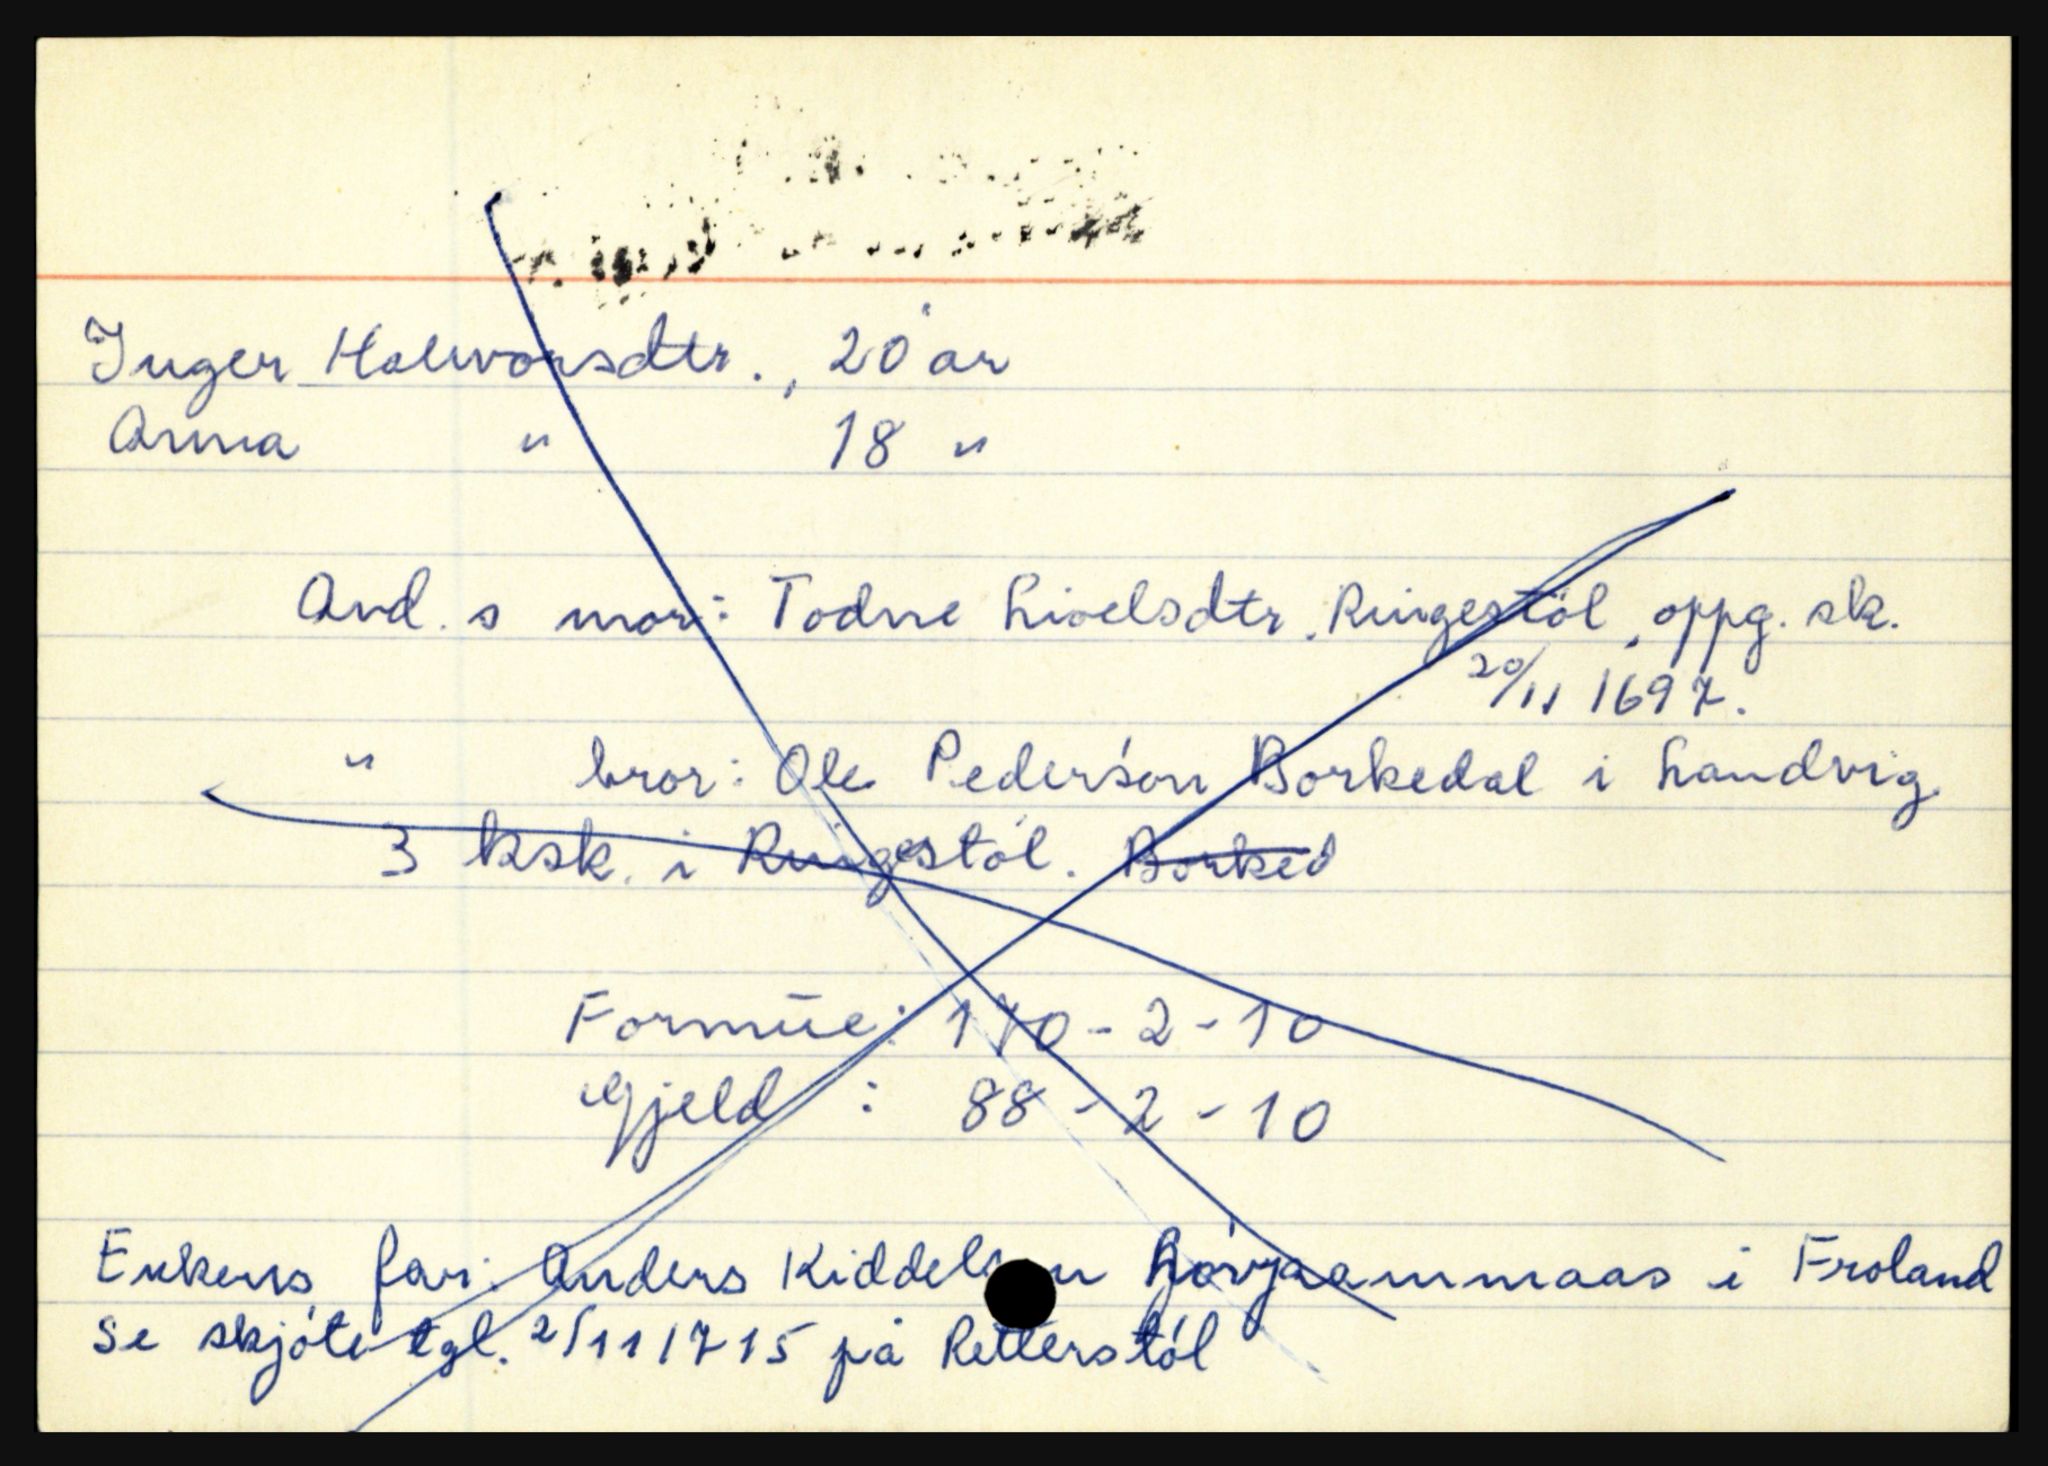 Inger Halvorsdtr., 20 år
Anna " 18 "
Avd. s mor: Todne Lioelsdtr. Ringestöl, oppg. sk.
20/11 1697.
" bror: Ole Pederson Borkedal i Landvig
3 ksk. i Ringestöl. Borked
Formüe: 170-2-10
Gjeld : 88-2-10
Enkens far: Anders Kiddelsen i Froland
Se skjöte tgl. 2/11 1715 på Retterstöl